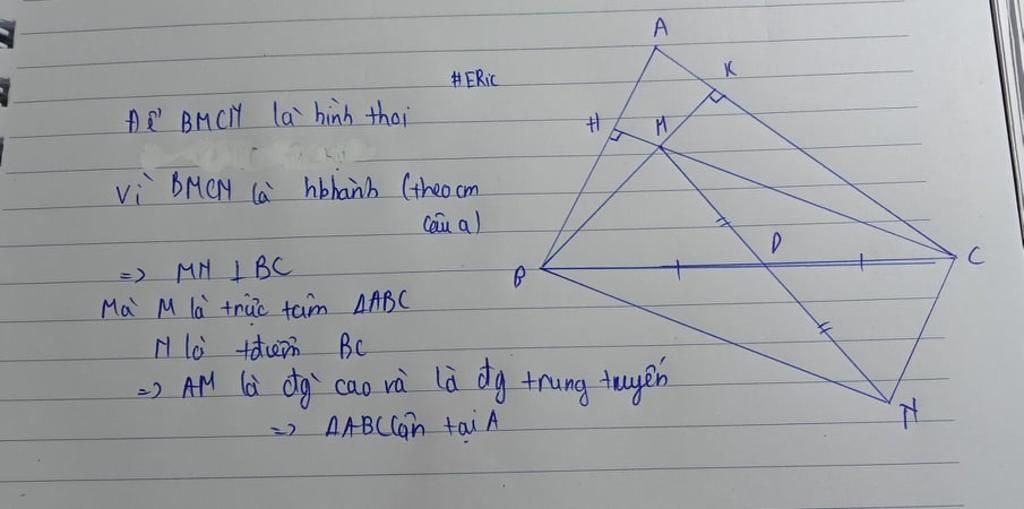 #ERic
Để BMCN là hình thoi
Vì BMCN là hbhành (theo cm
câu a)
=> MN ⊥ BC
Mà M là trực tâm ΔABC
N là +điểm BC
=> AM là đg cao và là đg trung tuyến
=> ΔABC cân tại A
A
K
H
M
D
B
C
N